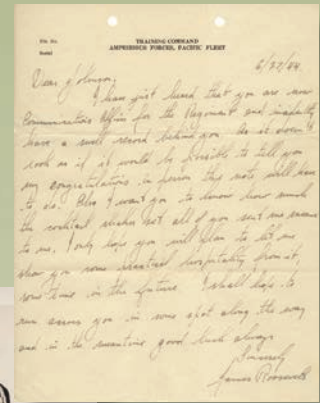 File No.
Serial
TRAINING COMMAND
AMPHIBIOUS FORCES, PACIFIC FLEET
6/27/44
Dear Johnson,
I have just heard that you are now
Communications Officer for the Regiment and
have a swell record behind you. As it doesn't
look as if it would be possible to tell you
my congratulations in person this note will have
to do. Also I want you to know how much
the cocktail shaker set all of you sent me means
to me. I only hope you will plan to let me
show you some hospitality from it,
some time in the future. I shall hope to
run across you in some spot along the way
and in the meantime good luck always
Sincerely
James Roosevelt